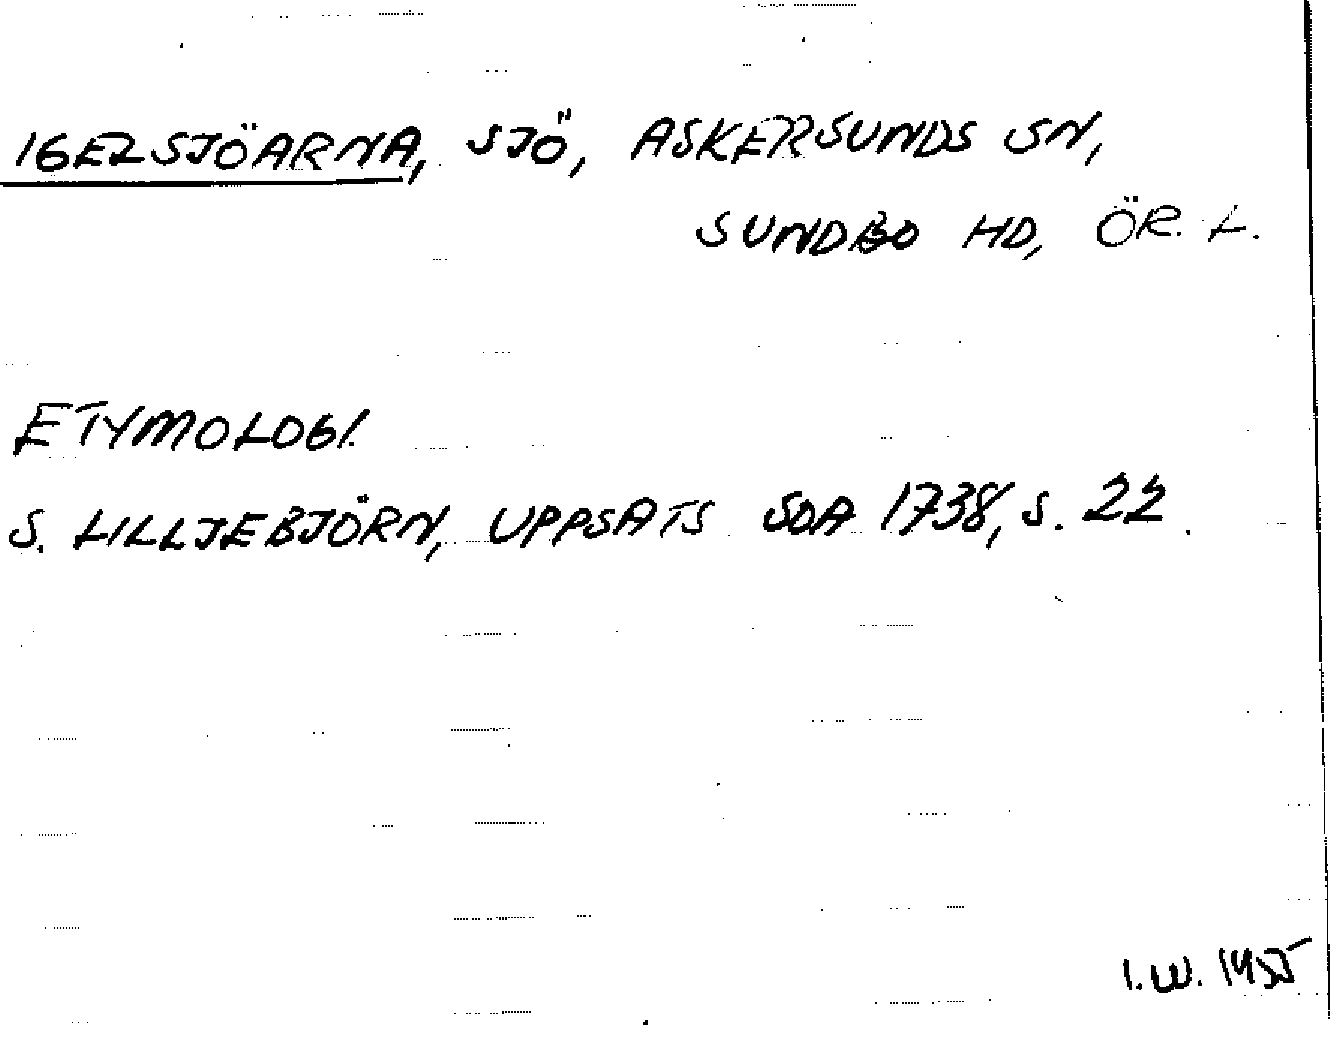 IGELSJÖARNA, SJÖ, ASKERSUNDS SN,
SUNDBO HD, ÖR. L.
ETYMOLOGI.
S. LILLJEBJÖRN, UPPSATS SOA 1738, S. 22.
I.W. 1955